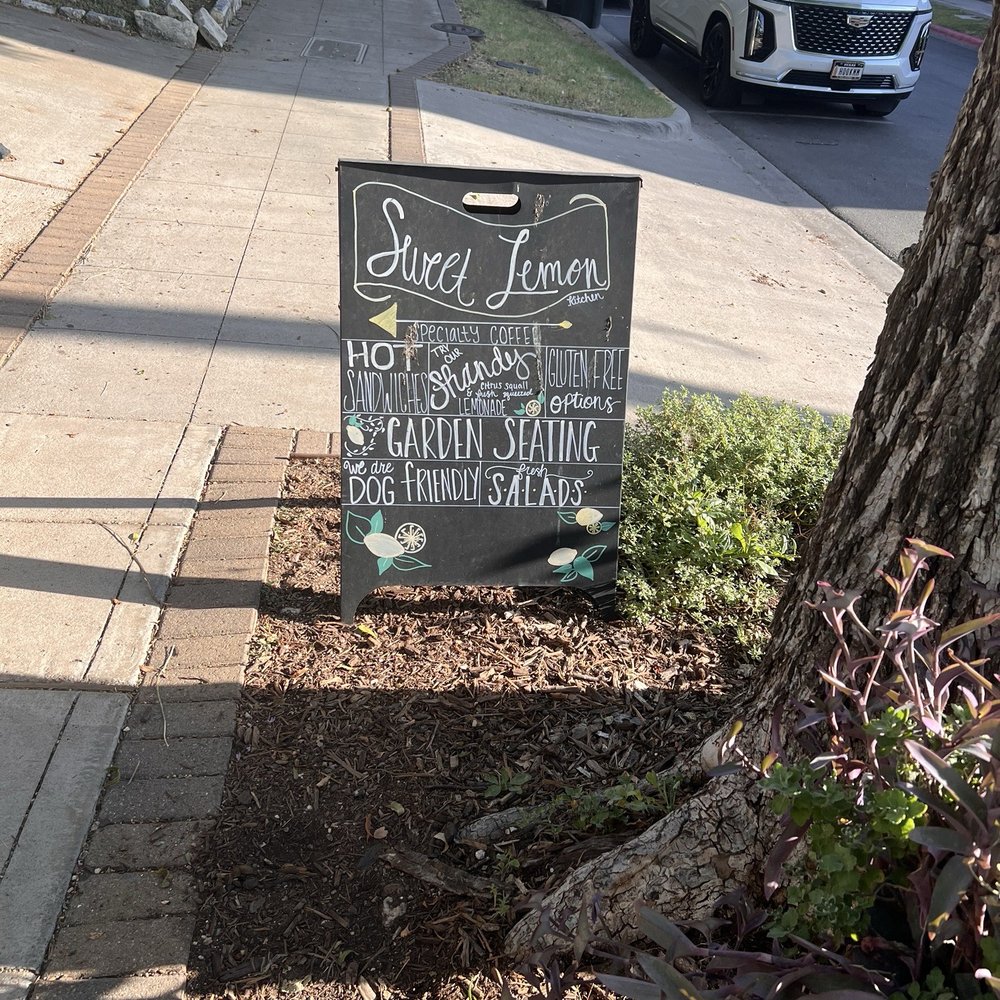 Sweet Lemon
Kitchen
SPECIALTY COFFEE
HOT
SANDWICHES
TRY
OUR
Shandy
CITRUS SQUALL
& fresh squeezed
LEMONADE
GLUTEN FREE
OPTIONS
GARDEN SEATING
We are
DOG FRIENDLY
fresh
SALADS